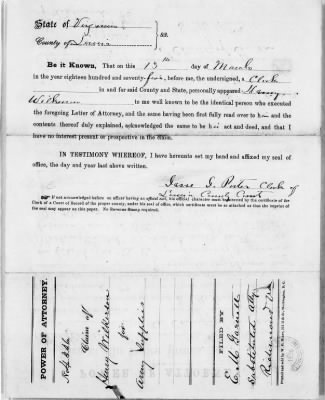 State of Virginia } ss.
County of Louisa
Be it Known, That on this 13th day of March
in the year eighteen hundred and seventy-five, before me, the undersigned, a Clerk
in and for said County and State, personally appeared Henry
Wilkerson to me well known to be the identical person who executed
the foregoing Letter of Attorney, and the same having been first fully read over to him and the
contents thereof duly explained, acknowledged the same to be his act and deed, and that I
have no interest present or prospective in the claim.
IN TESTIMONY WHEREOF, I have hereunto set my hand and affixed my seal of
office, the day and year last above written.
Jesse J. Porter Clerk of
Louisa County Court
If not acknowledged before an officer having an official seal, his official character must be certified by the certificate of the
Clerk of a Court of Record of the proper county, under his seal of office, which certificate must be so attached as that the imprint of
the seal may appear on this paper. No Revenue Stamp required.
POWER OF ATTORNEY.
Claim of
Henry Wilkerson
for
Army Supplies
FILED BY
C. M. Garnett
Substituted Atty
Richmond Va